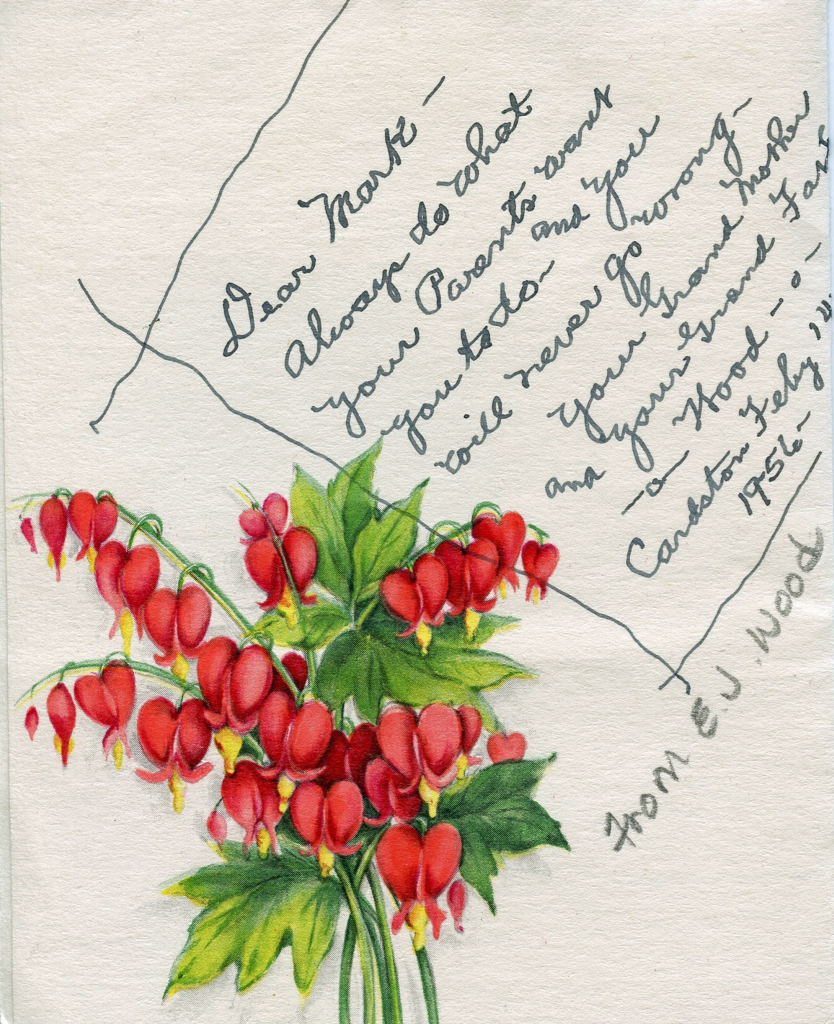 Dear Mark -
Always do what
your Parents want
you to do - and you
will never go wrong -
your Grand Mother
and your Grand Fat
- o - Wood - o -
Cardston Feby 14
1956 -
From E.J. Wood